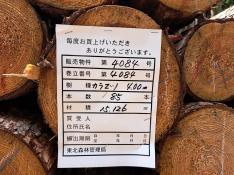 毎度お買上げいただき
ありがとうございます。
販売物件 第 4084 号
巻立番号 第 4084 号
樹 種 カラマツ 4.00m
本 数 85 本
材 積 15.126 m³
買受人
住所氏名
搬出期限 年 月 日
年 月 日
東北森林管理局